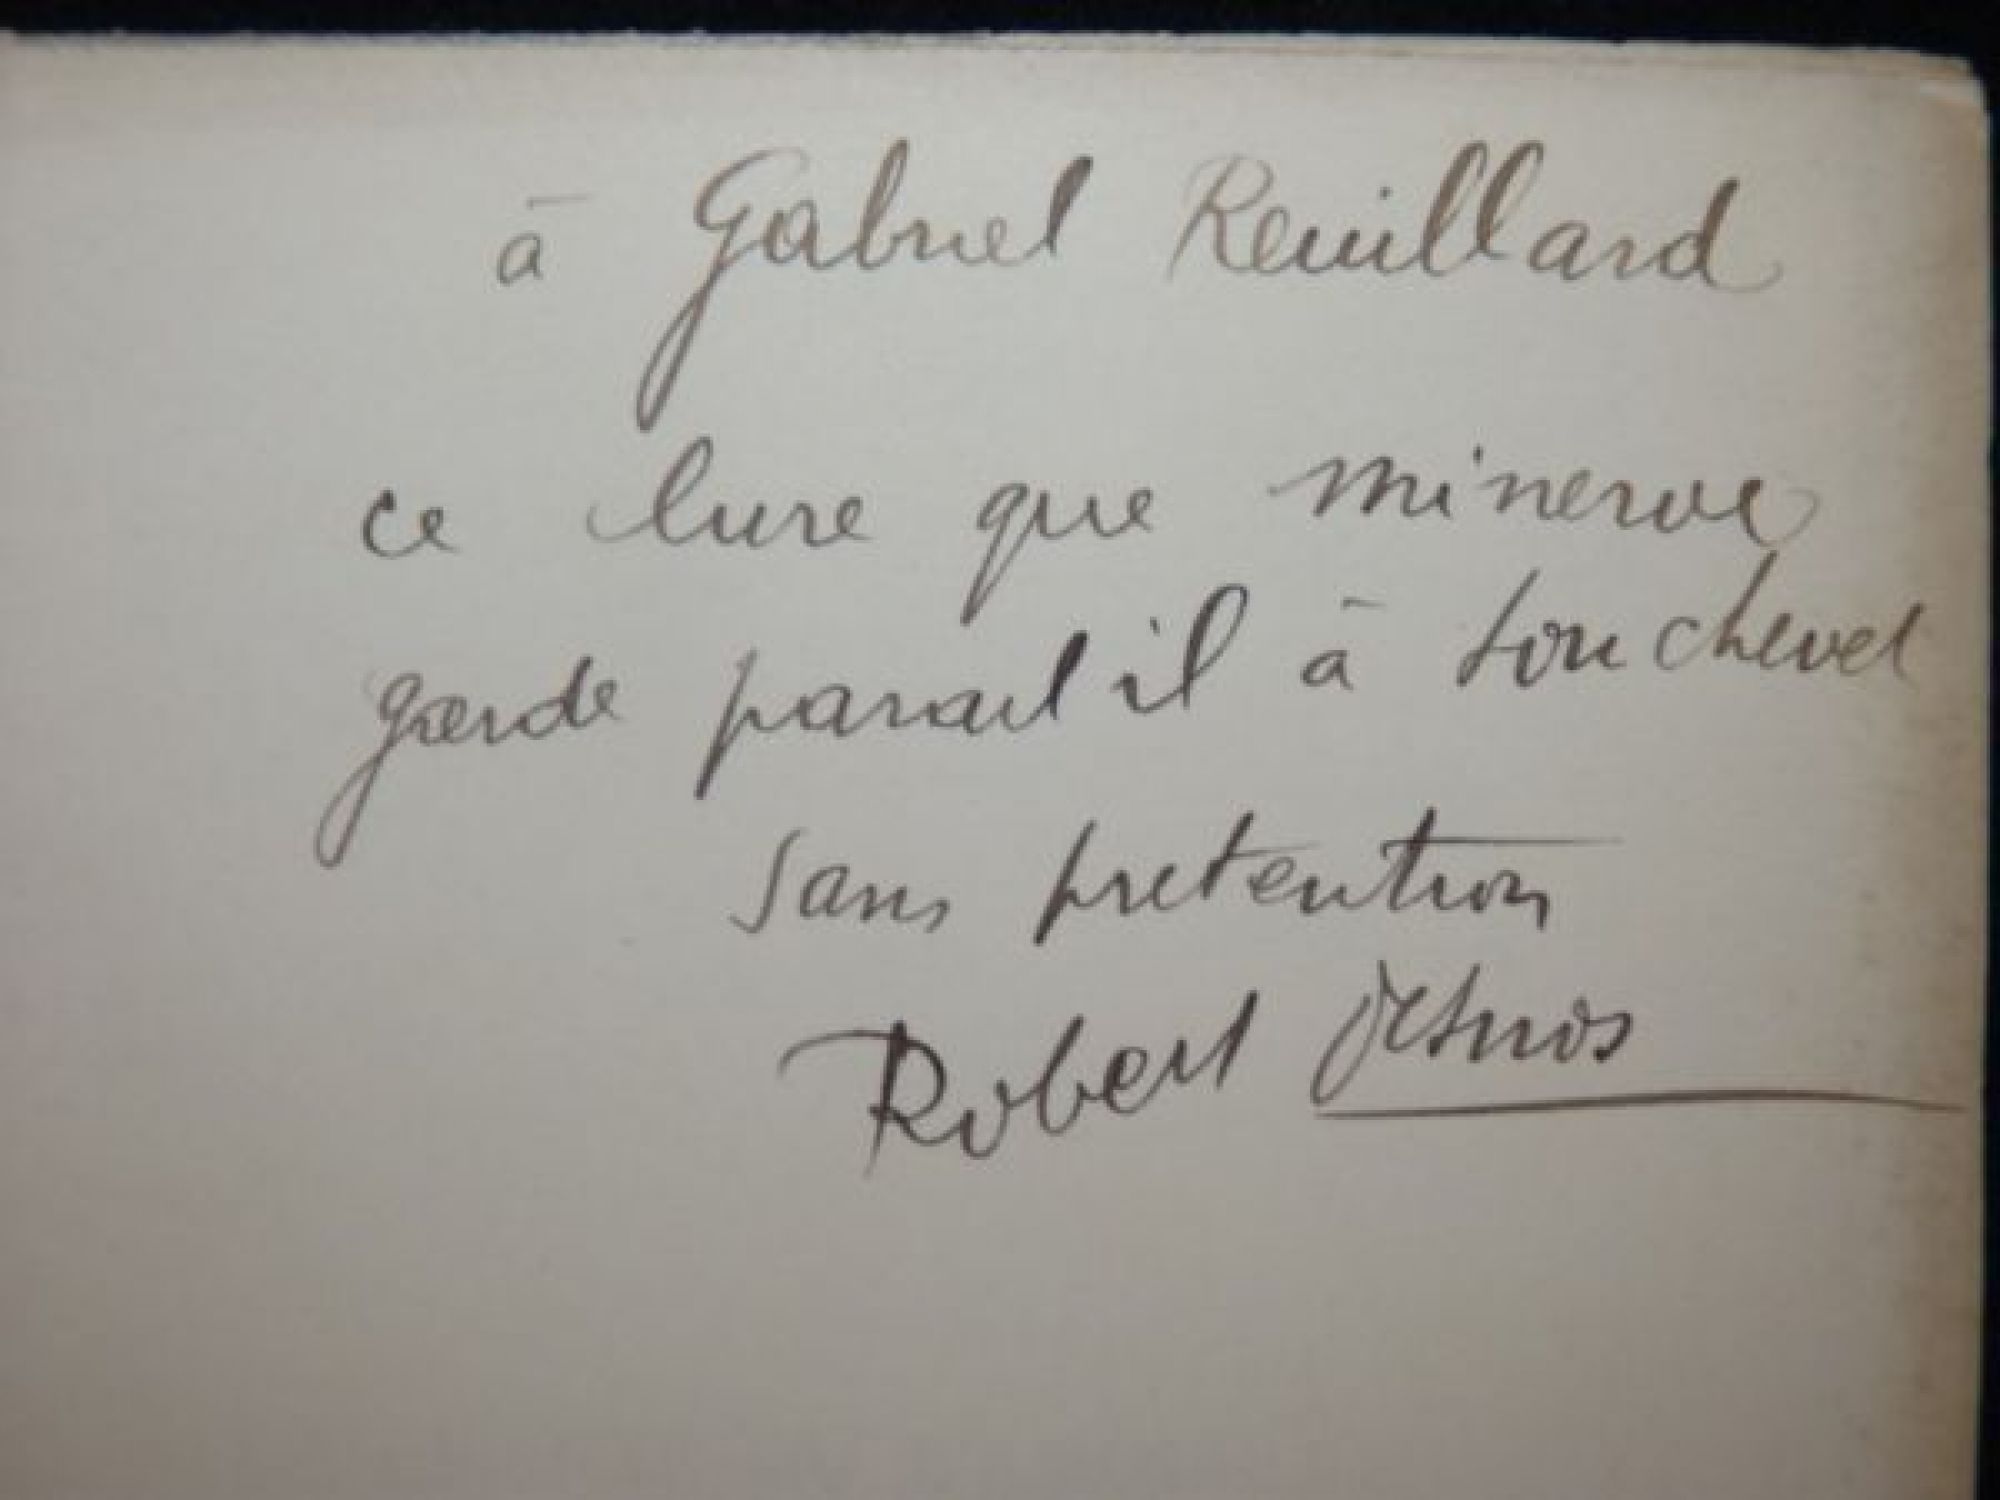 à Gabriel Reuillard
ce livre que minerve
garde parait il à son chevet
sans pretention
Robert Desnos